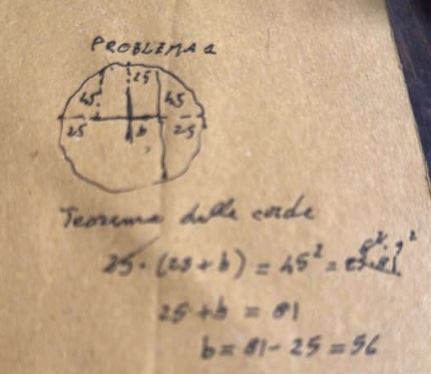 PROBLEMA 1
25
45 45
25 b 25
Teorema delle corde
25·(25+b) = 45² = 5²·9²
25+b = 81
b = 81-25 = 56